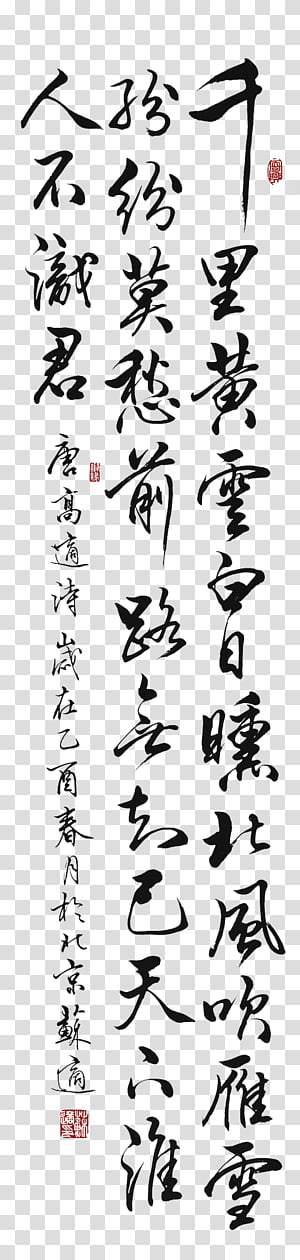 千里黄雲白日曛北風吹雁雪
紛紛莫愁前路無知己天下誰
人不識君
唐高適詩歲在乙酉春月於北京蘇適